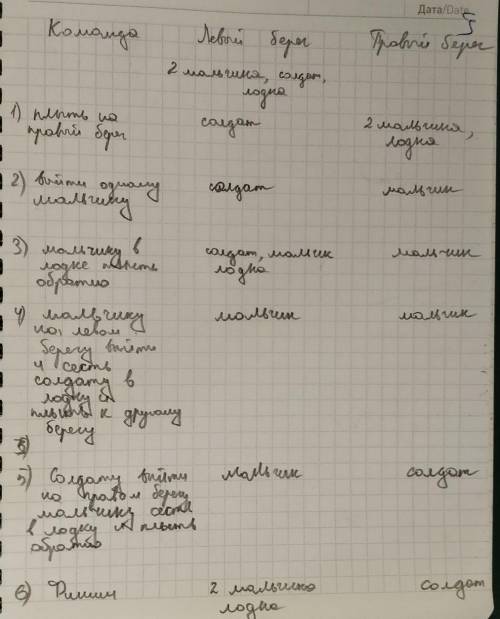 Дата/Date
Команда Левый берег Правый берег
2 мальчика, солдат,
лодка
1) плыть на солдат 2 мальчика,
правый берег лодка
2) выйти одному солдат мальчик
мальчику
3) мальчику в солдат, мальчик мальчик
лодке плыть лодка
обратно
4) мальчику мальчик мальчик
на левом
берегу выйти
и сесть
солдату в
лодку и
плыть к другому
берегу
5)
5) Солдату выйти мальчик солдат
на правом берегу
мальчику сесть
в лодку и плыть
обратно
6) Финиш 2 мальчика солдат
лодка